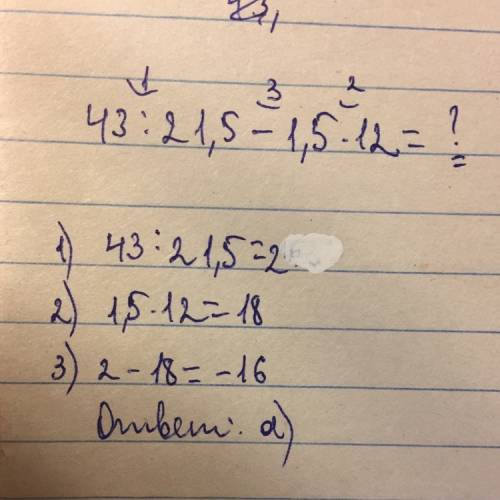 1 3 2
43:21,5-1,5·12=?
1) 43:21,5=2
2) 1,5·12=18
3) 2-18=-16
Ответ: а)